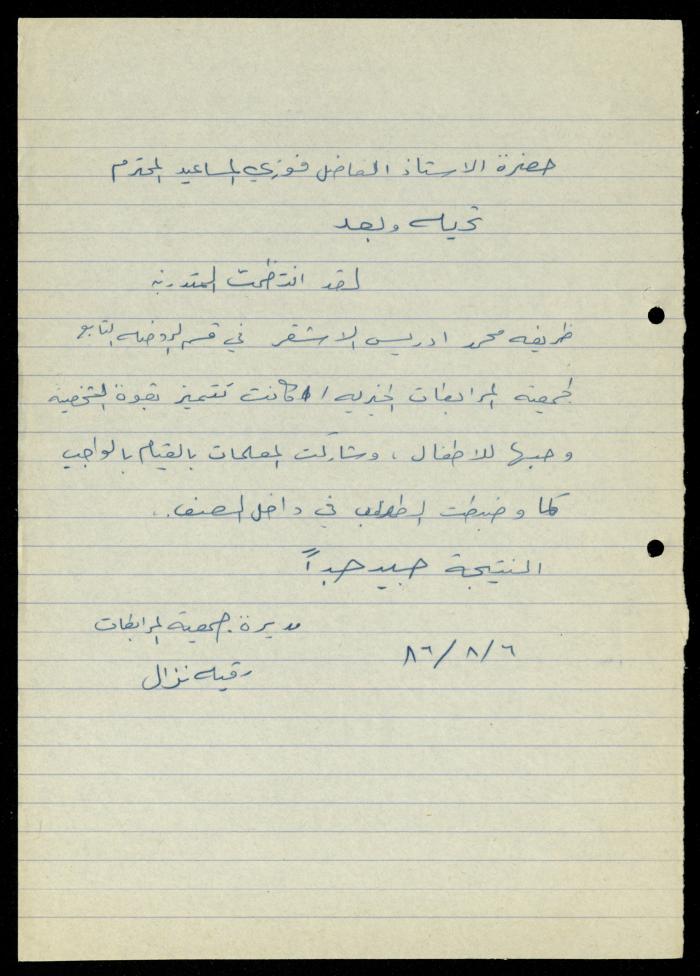 حضرة الاستاذ الفاضل فوزي المساعيد المحترم
تحيه وبعد
لقد انتظمت المتدربه
ظريفه محمد ادريس الاشقر في قسم الروضه التابع
لجمعية المرابطات الخيريه / كانت تتميز بقوة الشخصية
وحبها للاطفال ، وشاركت المعلمات بالقيام بالواجب
كما وضبطت الطلاب في داخل الصف ..
النتيجة جيد جداً
مديرة جمعية المرابطات
٨٦/٨/٦
رقيه نزال